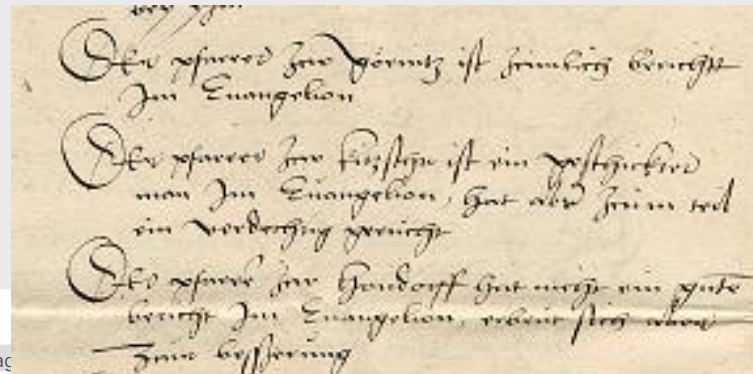 Der pfarrer zew görnitz ist zimlich bericht
Im Euangelion
Der pfarrer zew kitzschr ist ein geschickter
man Im Euangelion, hat aber zcum teil
ein gerucht
Der pfarrer zcw Hondorff hat nicht ein guten
bericht Im Euangelion, erbeut sich aber
zcur besserung